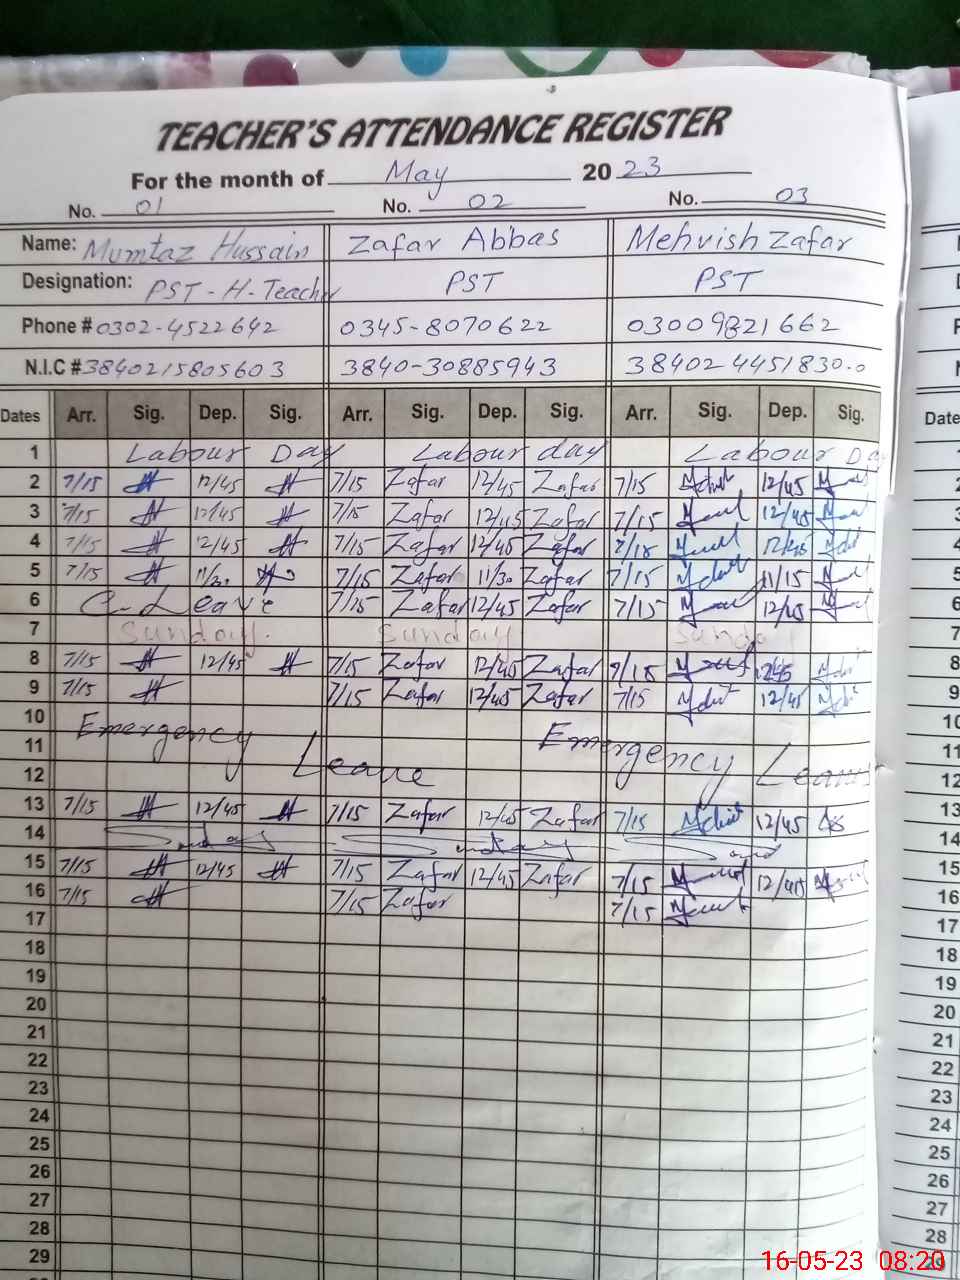 TEACHER'S ATTENDANCE REGISTER
For the month of May 2023
No. 01 No. 02 No. 03
Name: Mumtaz Hussain Zafar Abbas Mehvish Zafar
Designation: PST-H-Teacher PST PST
Phone # 0302-4522642 0345-8070622 03009821662
N.I.C # 3840215805603 3840-30885943 384024451830-0
Dates Arr. Sig. Dep. Sig. Arr. Sig. Dep. Sig. Arr. Sig. Dep. Sig. Date
1 Labour Day Labour day Labour Da
2 7/15 12/45 7/15 Zafar 12/45 Zafar 7/15 12/45 2
3 7/15 12/45 7/15 Zafar 12/45 Zafar 7/15 12/45 3
4 7/15 12/45 7/15 Zafar 12/45 Zafar 7/15 12/45 4
5 7/15 11/30 7/15 Zafar 11/30 Zafar 7/15 11/15 5
6 C-Leave 7/15 Zafar 12/45 Zafar 7/15 12/45 6
7 Sunday. Sunday Sunday 7
8 7/15 12/45 7/15 Zafar 12/45 Zafar 7/15 1245 8
9 7/15 7/15 Zafar 12/45 Zafar 7/15 12/45 9
10 Emergency Emergency 10
11 Leave Leave 11
12 12
13 7/15 12/45 7/15 Zafar 12/45 Zafar 7/15 12/45 13
14 Sunday Sunday 14
15 7/15 12/45 7/15 Zafar 12/45 Zafar 7/15 12/45 15
16 7/15 7/15 Zafar 7/15 16
17 17
18 18
19 19
20 20
21 21
22 22
23 23
24 24
25 25
26 26
27 27
28 28
29 29
16-05-23 08:20